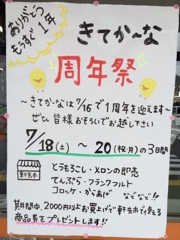 ありがとう
もうすぐ1年
きてか～な
周年祭
～きてか～なは7/16で1周年を迎えます～
ぜひ皆様おそろいでお越し下さい
7/18(土)～20(祝・月)の3日間
とうもろこし・メロンの即売
てんぷら・フランクフルト
コロッケ・からあげ などなど!!
期間中、2000円以上お買上げで軽トラ市で使える
商品券をプレゼントします!!